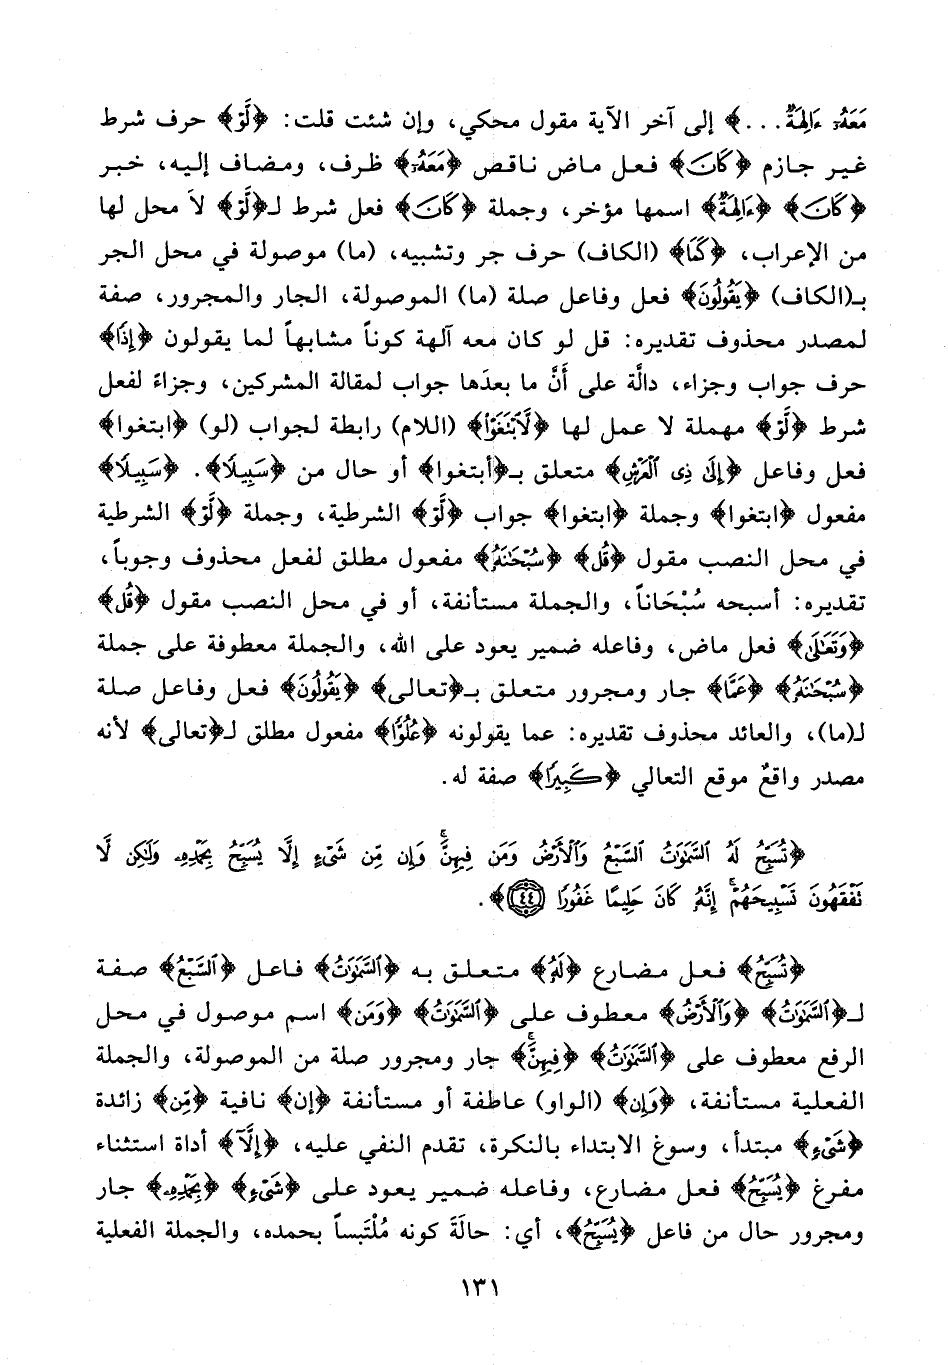 مَعَهُۥٓ ءَالِهَةٌ...﴾ إلى آخر الآية مقول محكي، وإن شئت قلت: ﴿لَّوْ﴾ حرف شرط
غير جازم ﴿كَانَ﴾ فعل ماض ناقص ﴿مَعَهُۥٓ﴾ ظرف، ومضاف إليه، خبر
﴿كَانَ﴾ ﴿ءَالِهَةٌ﴾ اسمها مؤخر، وجملة ﴿كَانَ﴾ فعل شرط لـ﴿لَّوْ﴾ لاَ محل لها
من الإعراب، ﴿كَمَا﴾ (الكاف) حرف جر وتشبيه، (ما) موصولة في محل الجر
بـ(الكاف) ﴿يَقُولُونَ﴾ فعل وفاعل صلة (ما) الموصولة، الجار والمجرور، صفة
لمصدر محذوف تقديره: قل لو كان معه آلهة كوناً مشابهاً لما يقولون ﴿إِذًا﴾
حرف جواب وجزاء، دالَّة على أَنَّ ما بعدَها جواب لمقالة المشركين، وجزاءً لفعل
شرط ﴿لَّوْ﴾ مهملة لا عمل لها ﴿لَّٱبْتَغَوْا۟﴾ (اللام) رابطة لجواب (لو) ﴿ابتغوا﴾
فعل وفاعل ﴿إِلَىٰ ذِى ٱلْعَرْشِ﴾ متعلق بـ﴿أبتغوا﴾ أو حال من ﴿سَبِيلًا﴾. ﴿سَبِيلًا﴾
مفعول ﴿ابتغوا﴾ وجملة ﴿ابتغوا﴾ جواب ﴿لَّوْ﴾ الشرطية، وجملة ﴿لَّوْ﴾ الشرطية
في محل النصب مقول ﴿قُل﴾ ﴿سُبْحَٰنَهُۥ﴾ مفعول مطلق لفعل محذوف وجوباً،
تقديره: أسبحه سُبْحَاناً، والجملة مستأنفة، أو في محل النصب مقول ﴿قُل﴾
﴿وَتَعَٰلَىٰ﴾ فعل ماض، وفاعله ضمير يعود على الله، والجملة معطوفة على جملة
﴿سُبْحَٰنَهُۥ﴾ ﴿عَمَّا﴾ جار ومجرور متعلق بـ﴿تعالى﴾ ﴿يَقُولُونَ﴾ فعل وفاعل صلة
لـ(ما)، والعائد محذوف تقديره: عما يقولونه ﴿عُلُوًّا﴾ مفعول مطلق لـ﴿تعالى﴾ لأنه
مصدر واقعٌ موقع التعالي ﴿كَبِيرًا﴾ صفة له.
﴿تُسَبِّحُ لَهُ ٱلسَّمَٰوَٰتُ ٱلسَّبْعُ وَٱلْأَرْضُ وَمَن فِيهِنَّ ۚ وَإِن مِّن شَىْءٍ إِلَّا يُسَبِّحُ بِحَمْدِهِۦ وَلَٰكِن لَّا
تَفْقَهُونَ تَسْبِيحَهُمْ ۚ إِنَّهُۥ كَانَ حَلِيمًا غَفُورًا ٤٤﴾.
﴿تُسَبِّحُ﴾ فعل مضارع ﴿لَهُ﴾ متعلق به ﴿ٱلسَّمَٰوَٰتُ﴾ فاعل ﴿ٱلسَّبْعُ﴾ صفة
لـ﴿ٱلسَّمَٰوَٰتُ﴾ ﴿وَٱلْأَرْضُ﴾ معطوف على ﴿ٱلسَّمَٰوَٰتُ﴾ ﴿وَمَن﴾ اسم موصول في محل
الرفع معطوف على ﴿ٱلسَّمَٰوَٰتُ﴾ ﴿فِيهِنَّ ۚ﴾ جار ومجرور صلة من الموصولة، والجملة
الفعلية مستأنفة، ﴿وَإِن﴾ (الواو) عاطفة أو مستأنفة ﴿إن﴾ نافية ﴿مِّن﴾ زائدة
﴿شَىْءٍ﴾ مبتدأ، وسوغ الابتداء بالنكرة، تقدم النفي عليه، ﴿إِلَّآ﴾ أداة استثناء
مفرغ ﴿يُسَبِّحُ﴾ فعل مضارع، وفاعله ضمير يعود على ﴿شَىْءٍ﴾ ﴿بِحَمْدِهِۦ﴾ جار
ومجرور حال من فاعل ﴿يُسَبِّحُ﴾، أي: حالَةَ كونه مُلْتَبساً بحمده، والجملة الفعلية
١٣١